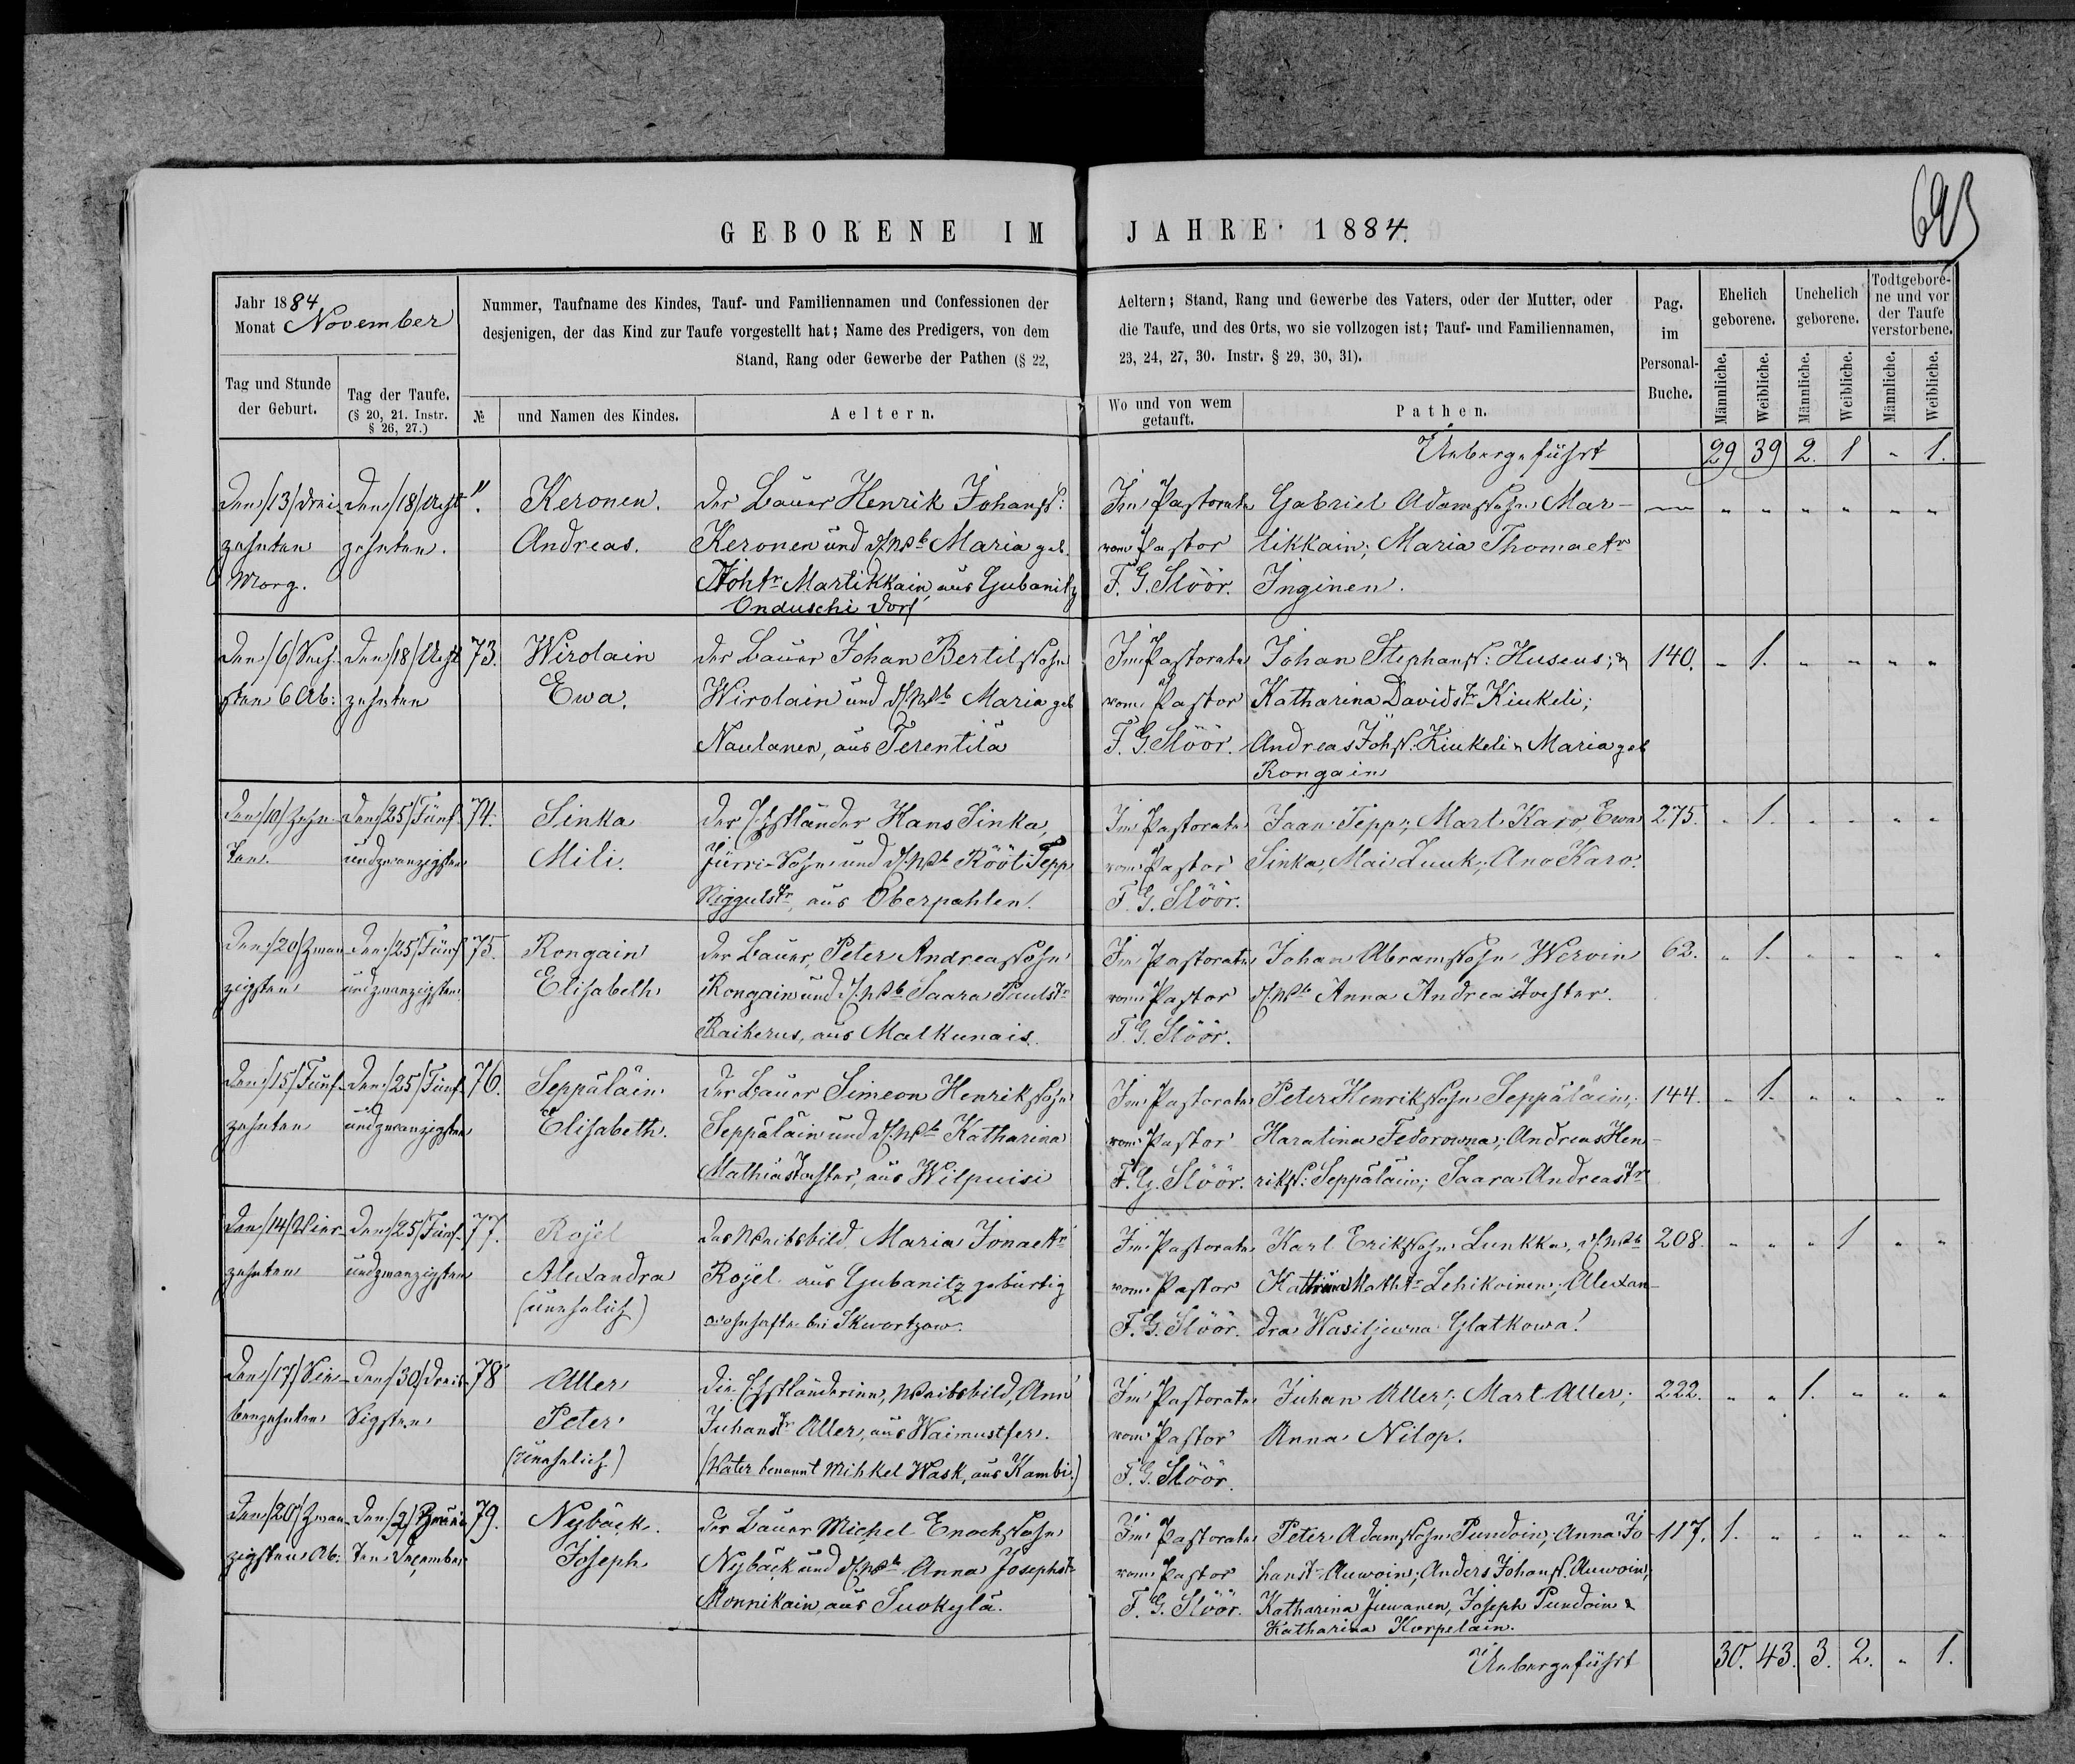 693
GEBORENE IM JAHRE 1884.
Jahr 1884
Monat November
Nummer, Taufname des Kindes, Tauf- und Familiennamen und Confessionen der Aeltern; Stand, Rang und Gewerbe des Vaters, oder der Mutter, oder
desjenigen, der das Kind zur Taufe vorgestellt hat; Name des Predigers, von dem die Taufe, und des Orts, wo sie vollzogen ist; Tauf- und Familiennamen,
Stand, Rang oder Gewerbe der Pathen (§ 22, 23, 24, 27, 30. Instr. § 29, 30, 31).
Pag.
im
Personal-
Buche.
Ehelich
geborene.
Unehelich
geborene.
Todtgebore-
ne und vor
der Taufe
verstorbene.
Tag und Stunde
der Geburt.
Tag der Taufe.
(§ 20, 21. Instr.
§ 26, 27.)
№
und Namen des Kindes.
Aeltern.
Wo und von wem
getauft.
Pathen.
Männliche. Weibliche. Männliche. Weibliche. Männliche. Weibliche.
Uebergeführt 29 39 2. 1 " 1.
Den /13/ Drei- Den /18/ Acht- ". Keronen. Der Bauer Henrik Johanss: Im Pastorate Gabriel Adamssohn Mar- " " " " " "
zehnten zehnten. Andreas. Keronen und ds. Wb Maria geb. vom Pastor tikkain; Maria Thomastr
Morg. Martikkain, aus Gubanitz F. G. Slöör. Inginen.
Onduschi Dorf
Den /6/ Sechs- Den /18/ Acht- 73. Wirolain Der Bauer Johan Bertilssohn Im Pastorate Johan Stephanss: Husens; & 140. " 1. " " " "
ten 6 Ab: zehnten Ewa. Wirolain und ds. Wb Maria geb vom Pastor Katharina Davidstr Kiukeli;
Naulanen, aus Terentilä F. G. Slöör. Andreas Johs. Kiukeli & Maria geb
Rongain
Den /10/ Zehn- Den /25/ Fünf- 74. Sinka Der Ehstländer Hans Sinka, Im Pastorate Jaan Tepp; Mart Karo, Ewa 275. " 1. " " " "
ten. undzwanzigsten Mili. Jürri-Sohn und ds. Wb Rööt Tepp vom Pastor Sinka, Mai Luuk, Ano Karo.
Niggulstr, aus Oberpahlen. F. G. Slöör.
Den /20/ Zwan- Den /25/ Fünf- 75. Rongain Der Bauer, Peter Andreassohn Im Pastorate Johan Abramssohn Wervin 62. " 1. " " " "
zigsten undzwanzigsten Elisabeth Rongain und ds. Wb Saara Paulstr vom Pastor ds. Wb Anna Andreastochter.
Raikerus, aus Matkunais. F. G. Slöör.
Den /15/ Fünf- Den /25/ Fünf- 76. Seppäläin Der Bauer Simeon Henrikssohn Im Pastorate Peter Henrikssohn Seppäläin; 144. " 1. " " " "
zehnten undzwanzigsten Elisabeth. Seppäläin und ds. Wb Katharina vom Pastor Haratina Fedorowna; Andreas Hen-
Mathiastochter, aus Wilpuisi F. G. Slöör. rikss: Seppäläin; Saara Andreastr
Den /14/ Vier- Den /25/ Fünf- 77. Rojel Das Weibsbild Maria Jonastr Im Pastorate Karl Erikssohn Lunkka, ds. Wb 208. " " " 1 " "
zehnten undzwanzigsten Alexandra Rojel aus Gubanitz gebürtig vom Pastor Katrina Mathtr Lehikoinen; Alexan-
(unehelich) wohnhaft bei Skwortzow. F. G. Slöör. dra Wasiljewna Glatkowa.
Den /17/ Sie- Den /30/ Dreis- 78 Aller Die Ehstländerinn, Weibsbild, Ann Im Pastorate Juhan Aller; Mart Aller; 222. " " 1. " " "
benzehnten sigsten Peter Juhanstr Aller, aus Waimustfer. vom Pastor Anna Nilop.
(unehelich) (Vater benannt Mihkel Wask, aus Kambi.) F. G. Slöör.
Den /20/ Zwan- Den /2/ Zwei- 79. Nybäck. Der Bauer Michel Enochssohn Im Pastorate Peter Adamssohn Pundoin; Anna Jo- 117. 1. " " " " "
zigsten Ab: ten December Joseph Nybäck und ds. Wb Anna Josephstr vom Pastor hanstr Auwoin; Anders Johanss. Auwoin;
Monnikain, aus Suokylä. F. G. Slöör. Katharina Juwanen, Joseph Pundoin &
Katharina Korpelain.
Uebergeführt 30. 43. 3. 2. " 1.